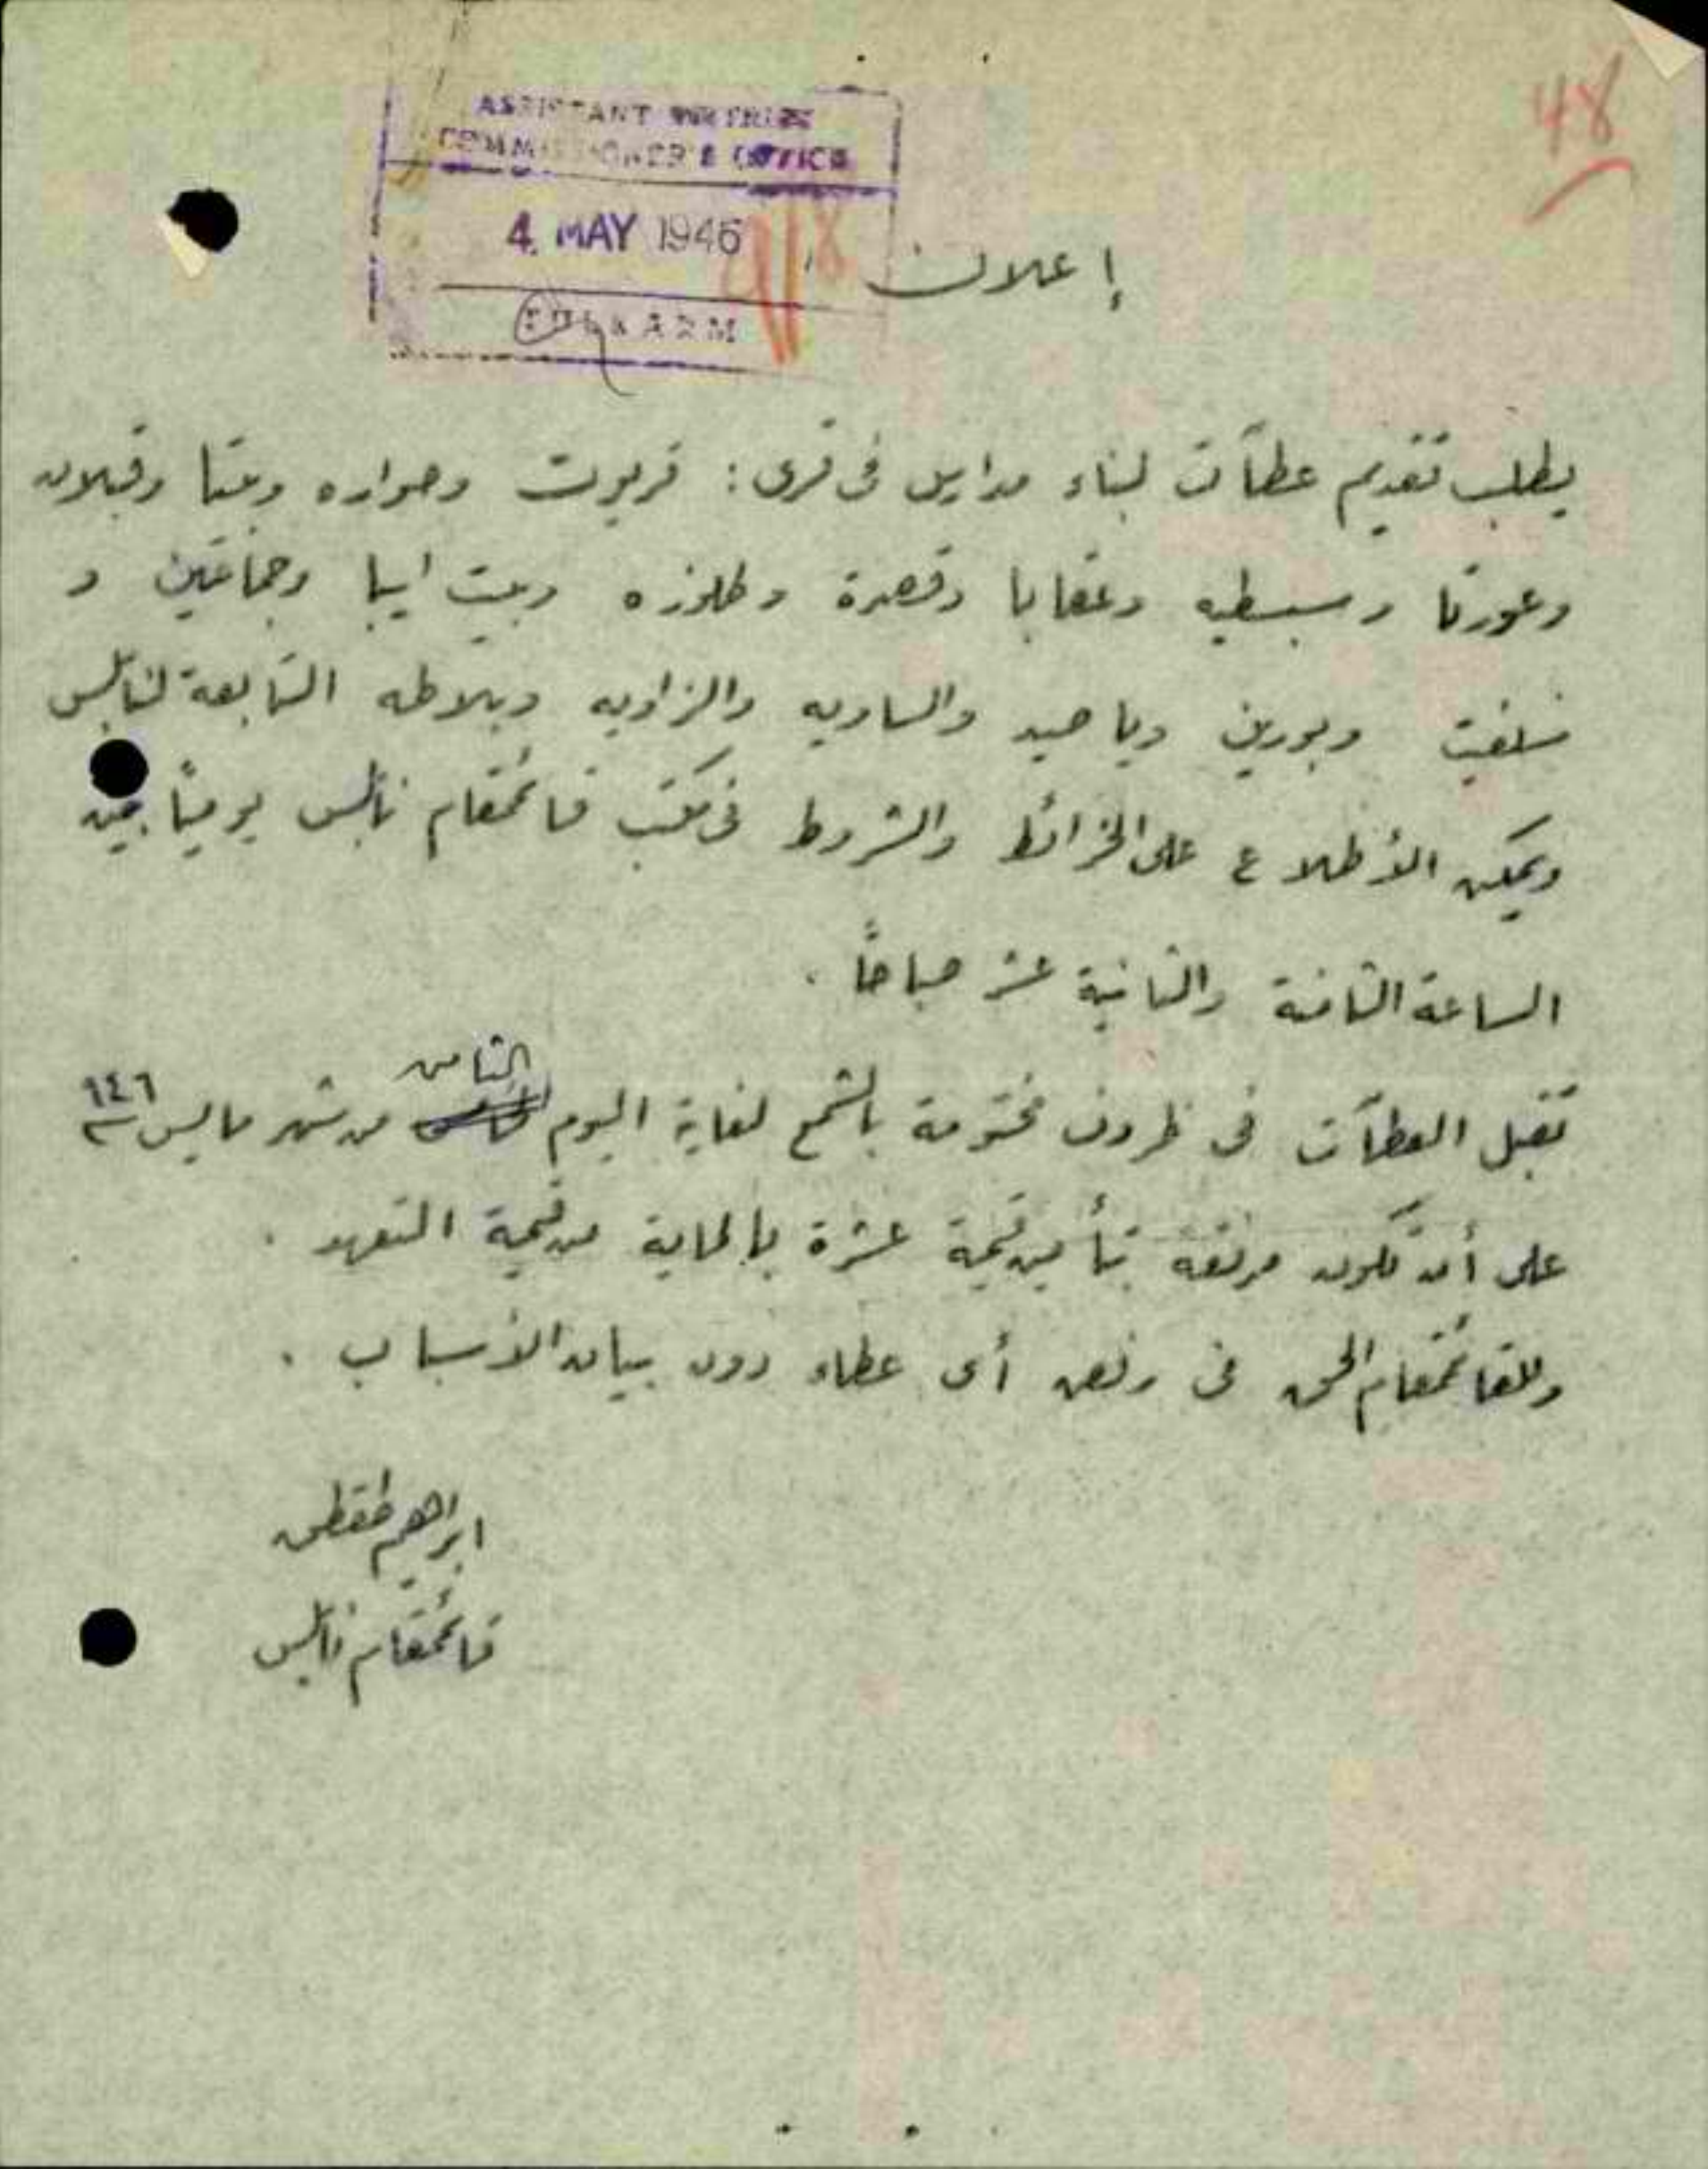 48
ASSISTANT DISTRICT
COMMISSIONER'S OFFICE
4 MAY 1946
TULKARM
إعلان
يطلب تقديم عطآت لبناء مدارس في قرى : قريوت وحواره وبيتا وقبلان
وعورتا وسبسطيه وعقابا وقصرة وطلوزه وبيت ايبا وجماعين و
سلفيت وبورين وياصيد والساويه والزاويه وبلاطه التابعة لنابلس
ويمكن الأطلاع على الخرائط والشروط في مكتب قائمقام نابلس يومياً بين
الساعة الثامنة والثانية عشر صباحاً .
تقبل العطآت في ظروف مختومة بالشمع لغاية اليوم الثامن من شهر مايس ٩٤٦
على أن تكون مرفقه بتأمين قيمة عشرة بالماية من قيمة التعهد .
وللقائمقام الحق في رفض أى عطاء دون بيان الأسباب .
ابراهيم طقطق
قائمقام نابلس